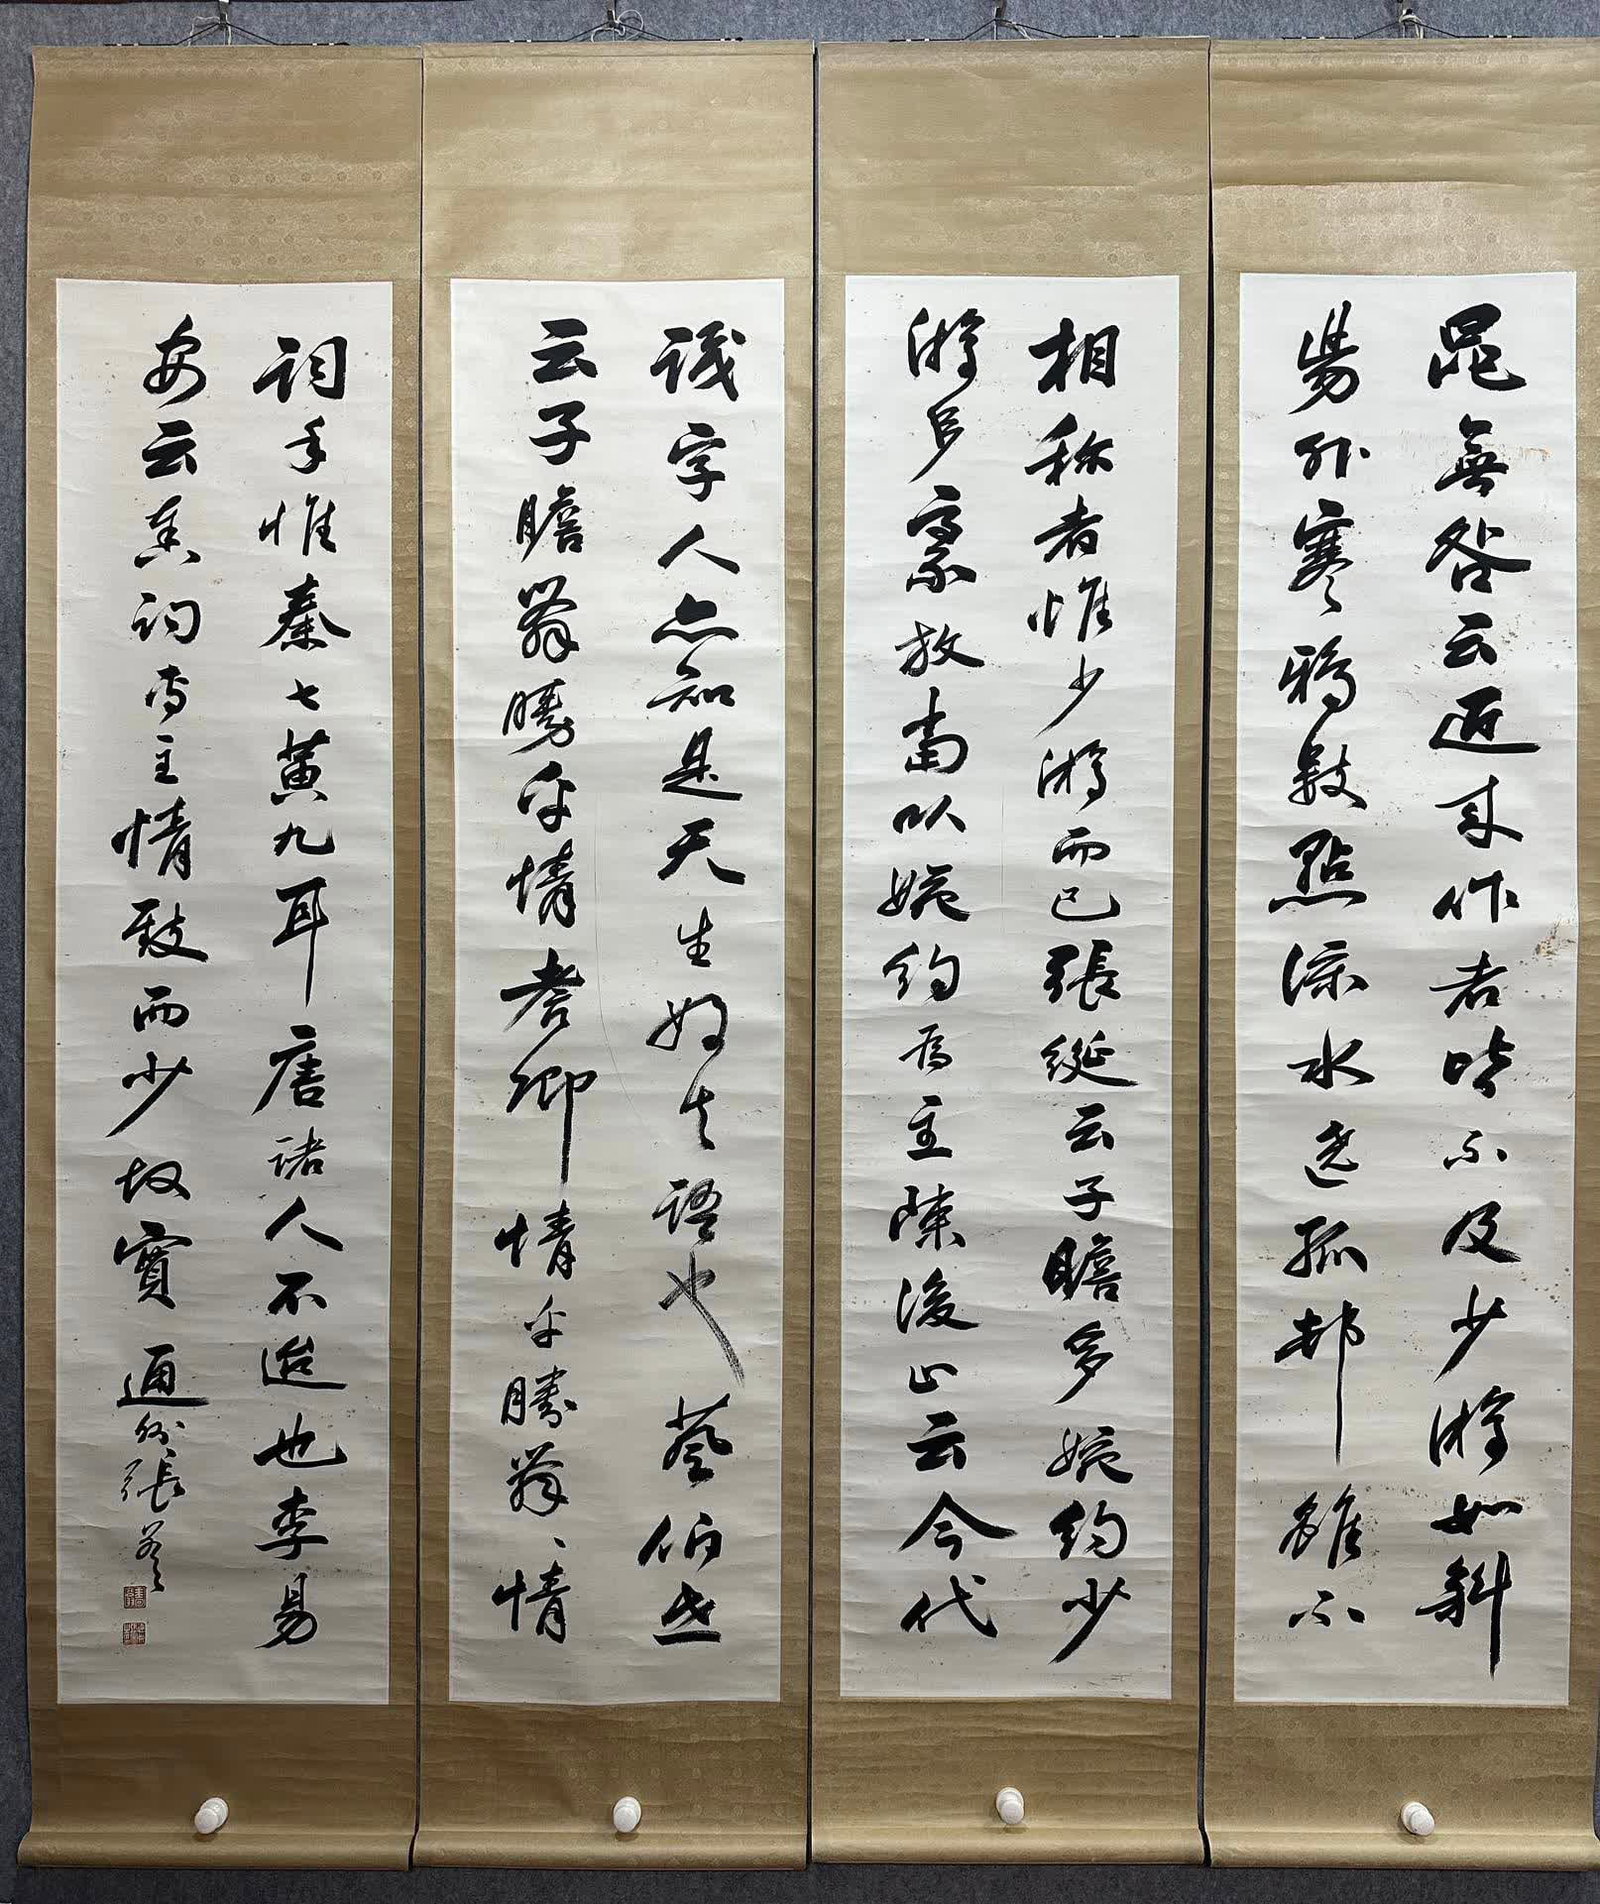 晁無咎云近来作者皆不及少游如斜
陽外寒鴉數點流水遶孤邨雖不
相称者惟少游而已張綖云子瞻多婉約少
游多豪放當以婉約為主陳後山云今代
識字人亦知是天生好言語也蔡伯世
云子瞻辭勝乎情耆卿情乎勝辭、情
詞手惟秦七黃九耳唐諸人不迨也李易
安云秦詞專主情致而少故實 通州張謇